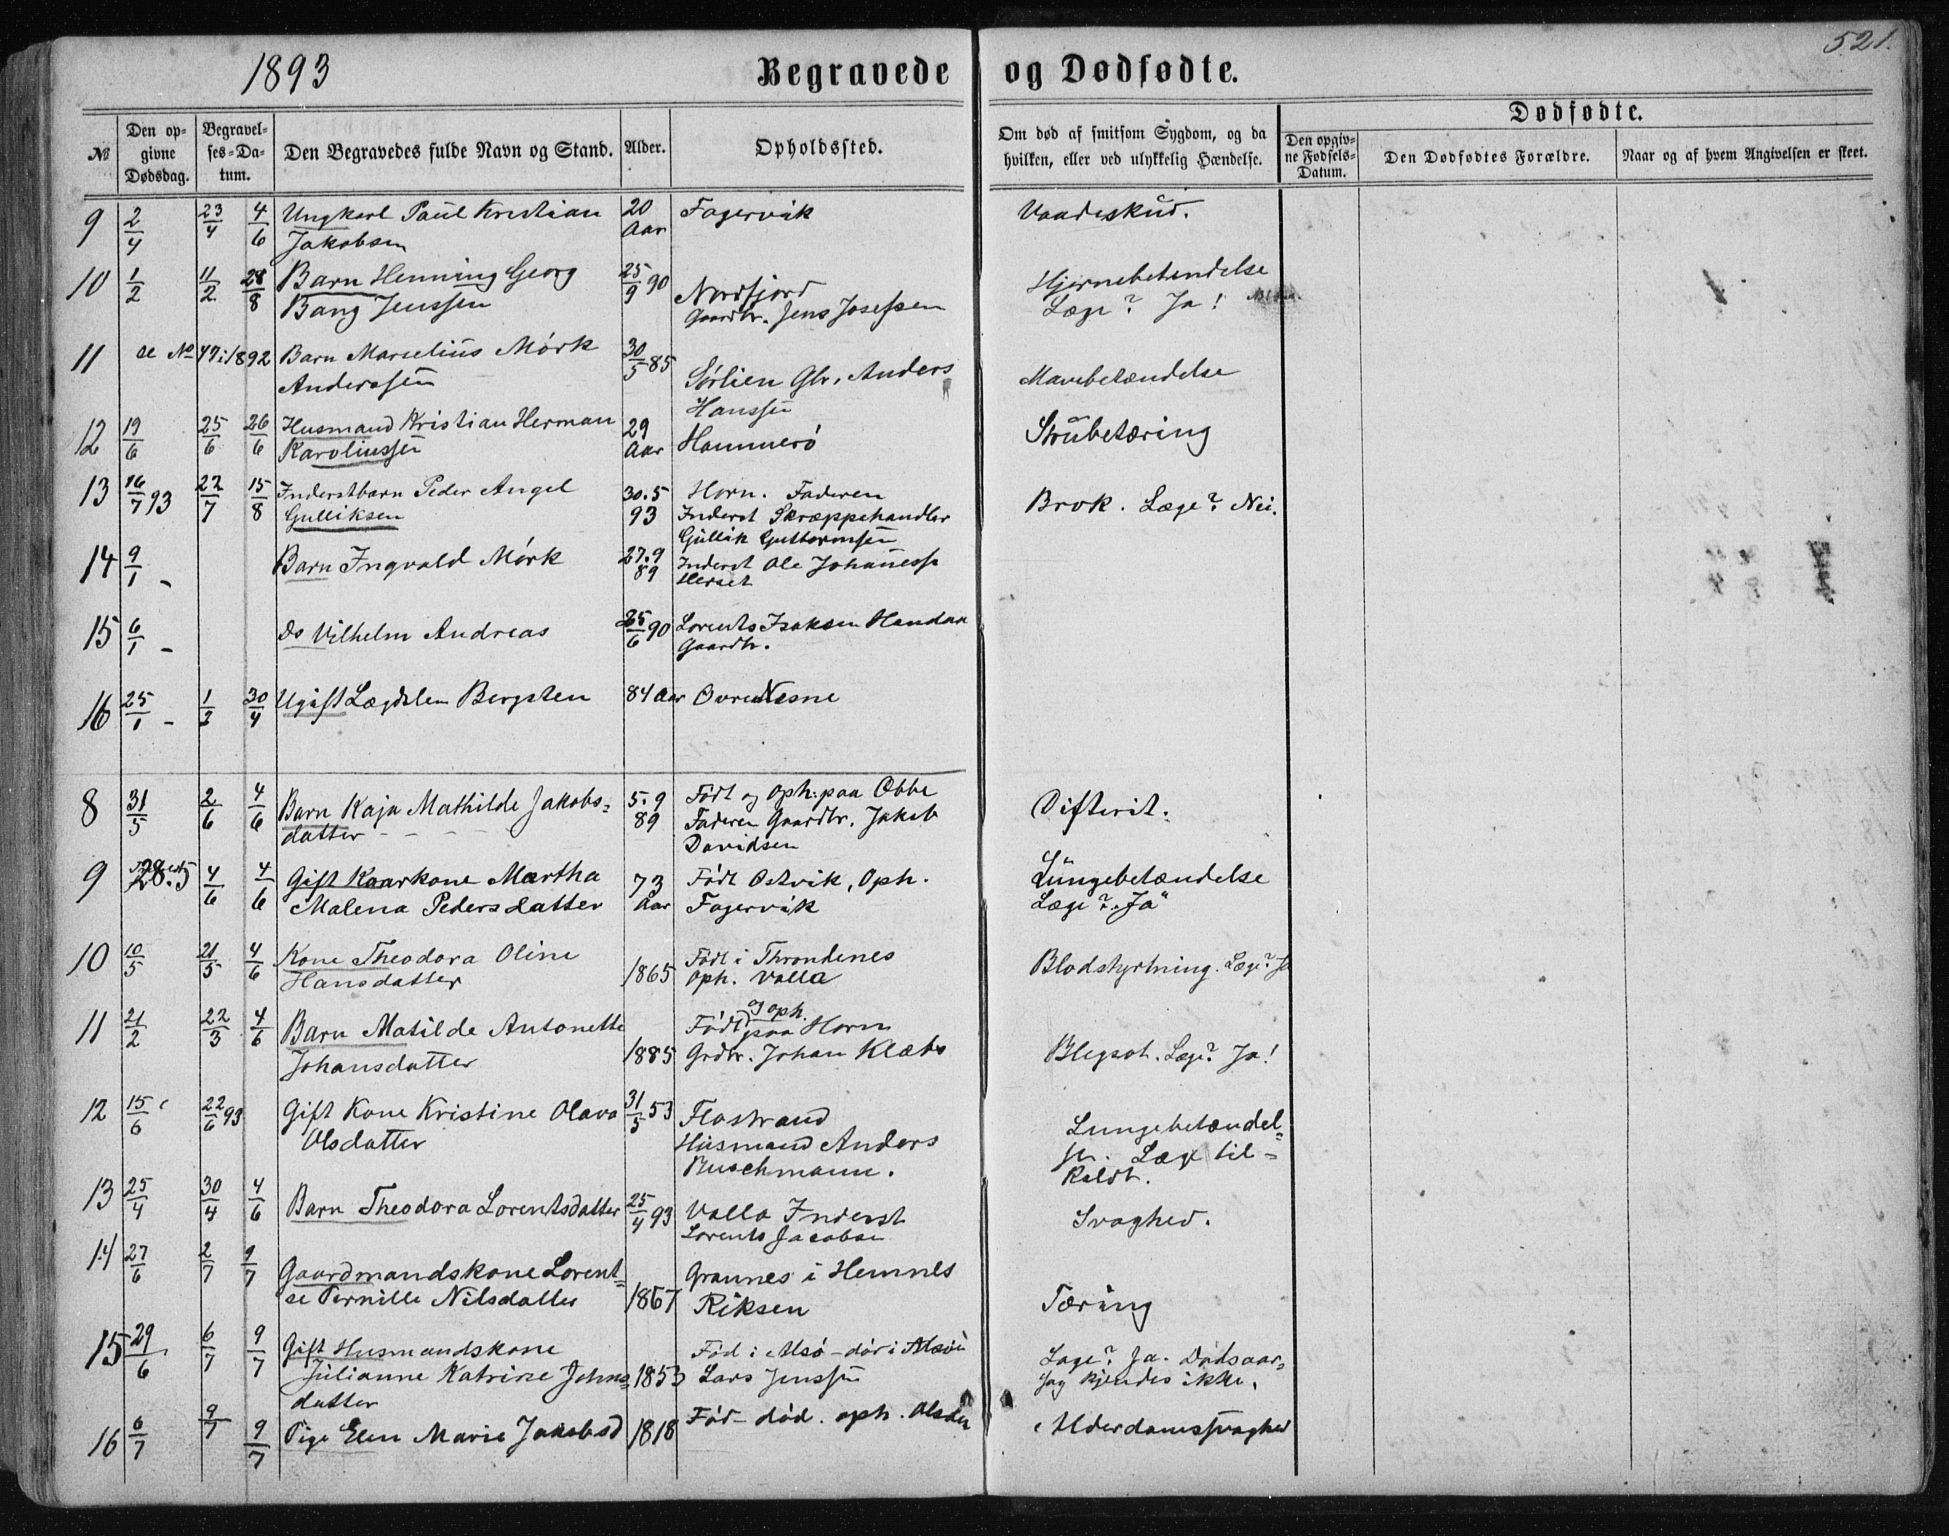 1893 Begravede og Dødfødte. 521.
Dødfødte.
№ Den opgivne Dødsdag. Begravelses-Datum. Den Begravedes fulde Navn og Stand. Alder. Opholdssted. Om død af smitsom Sygdom, og da hvilken, eller ved ulykkelig Hændelse. Den opgivne Fødsels-Datum. Den Dødfødtes Forældre. Naar og af hvem Angivelsen er skeet.
9 2/4 23/4 4/6 Ungkarl Paul Kristian 20 Aar Fagervik Vaadeskud.
Jakobsen
10 1/2 11/2 28/8 Barn Henning Georg 25/9 90 Nordfjord Hjernebetendelse
Bang Jenssen Gaardbr. Jens Josefsen Læge? Ja!
11 se No 47 i 1892 Barn Marselius Mörk 30/5 85 Sörlien Gbr. Anders Mavebetændelse
Anderssen Hanssen
12 19/6 25/6 26/6 Husmand Kristian Herman 29 Aar Hammerö Strubetæring
Karoliussen
13 16/7 93 22/7 15/8 Inderstbarn Peder Angel 30.5 93 Horn. Faderen Brok. Læge? Nei.
Gulliksen Inderst Skræppehandler
Gullik Guttormsen
14 9/1 - Barn Ingvald Mörk 27.9 89 Inderst Ole Johaness
Herset
15 6/1 - Do Vilhelm Andreas 25/6 90 Lorents Isaksen
Gaardbr.
16 25/1 - 1/2 30/4 Ugift Lægdslem Bergsten 84 Aar Övre Nesne
8 31/5 2/6 4/6 Barn Kaja Mathilde Jakobs= 5.9 89 Födt og Oph: paa Obbe Difterit.
datter - - - - Faderen Gaardbr. Jakob
Davidsen
9 28.5 4/6 4/6 Gift Kaarkone Martha 73 Aar Födt Ostvik, Oph. Lungebetændelse
Malena Pedersdatter Fagervik Læge? "Ja"
10 10/5 21/5 4/6 Kone Theodora Oline 1865 Födt i Throndenes Blodstyrtning. Læge? Ja
Hansdatter Oph. Valla
11 21/2 22/3 4/6 Barn Matilde Antonette 1885 Födt og oph. paa Horn
Johansdatter Grdbr. Johan Klæbo Blegsot. Læge? Ja!
12 15/6 22/6 93 Gift Kone Kristine Olava 31/5 53 Flostrand Lungebetændel=
Olsdatter Husmand Anders se. Læge til=
Buschmann. kaldt.
13 25/4 30/4 4/6 Barn Theodora Lorentsdatter 25/4 93 Valla Inderst Svaghed.
Lorents Jacobsen
14 27/6 2/7 9/7 Gaardmandskone Lorent= 1867 Grannes i Hemnes
se Pernille Nilsdatter Riksen Tæring
15 29/6 6/7 9/7 Gift Husmandskone Föd i Alsö - dör i Læge? Ja. Dödsaar=
Julianne Katrine Johns= 1853 Lars Jenssen sag kjendes ikke.
datter
16 6/7 9/7 9/7 Pige Elen Marie Jakobsd 1818 Föd - död. oph. Alderdomssvaghed